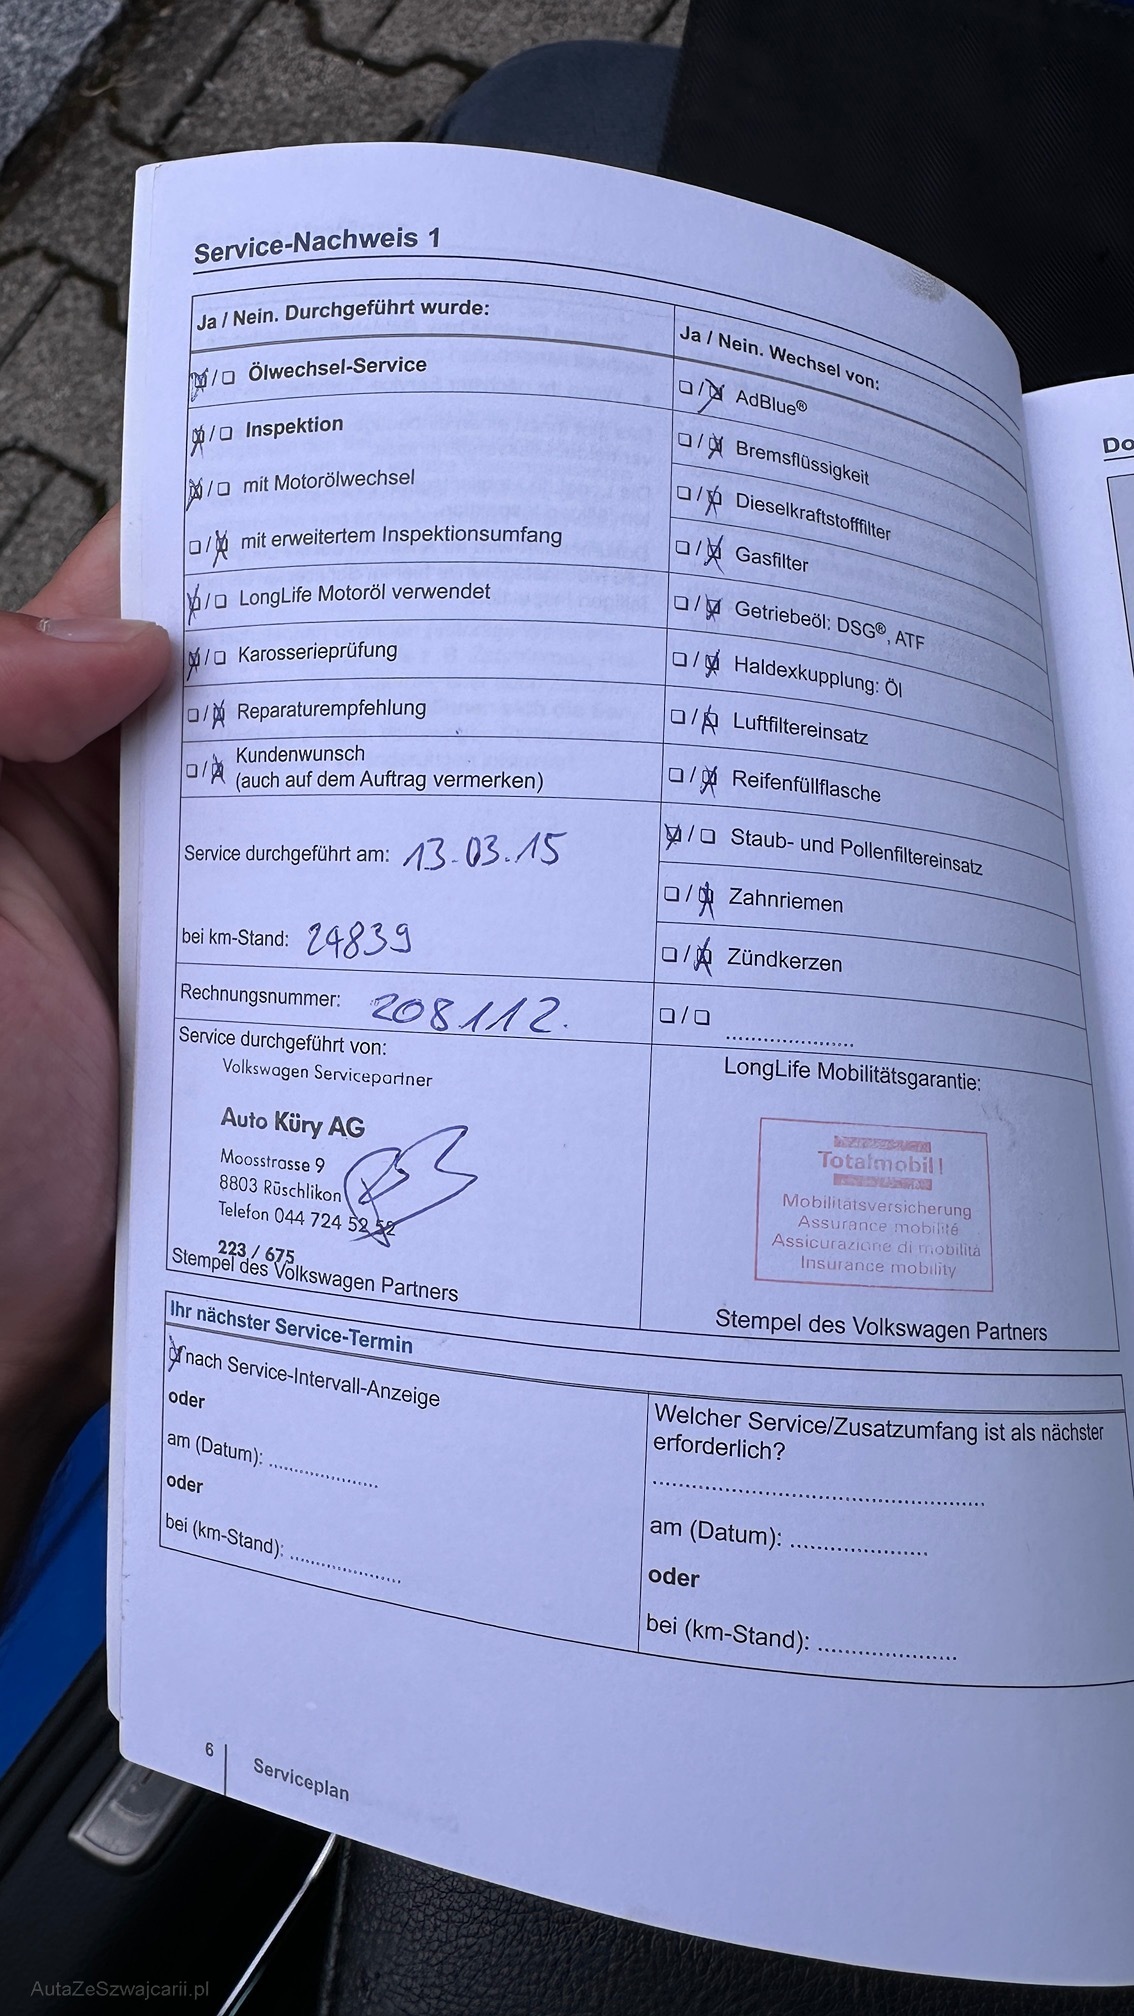 Service-Nachweis 1
Ja / Nein. Durchgeführt wurde:
Ölwechsel-Service
Inspektion
mit Motorölwechsel
mit erweitertem Inspektionsumfang
LongLife Motoröl verwendet
Karosserieprüfung
Reparaturempfehlung
Kundenwunsch
(auch auf dem Auftrag vermerken)
Service durchgeführt am: 13.03.15
bei km-Stand: 24839
Rechnungsnummer: 208112.
Service durchgeführt von:
Volkswagen Servicepartner
Auto Küry AG
Moosstrasse 9
8803 Rüschlikon
Telefon 044 724 52 52
223 / 675
Stempel des Volkswagen Partners
Ja / Nein. Wechsel von:
AdBlue®
Bremsflüssigkeit
Dieselkraftstofffilter
Gasfilter
Getriebeöl: DSG®, ATF
Haldexkupplung: Öl
Luftfiltereinsatz
Reifenfüllflasche
Staub- und Pollenfiltereinsatz
Zahnriemen
Zündkerzen
LongLife Mobilitätsgarantie:
Totalmobil!
Mobilitätsversicherung
Assurance mobilité
Assicurazione di mobilità
Insurance mobility
Stempel des Volkswagen Partners
Ihr nächster Service-Termin
nach Service-Intervall-Anzeige
oder
am (Datum):
oder
bei (km-Stand):
Welcher Service/Zusatzumfang ist als nächster
erforderlich?
am (Datum):
oder
bei (km-Stand):
6
Serviceplan
Do
AutaZeSzwajcarii.pl